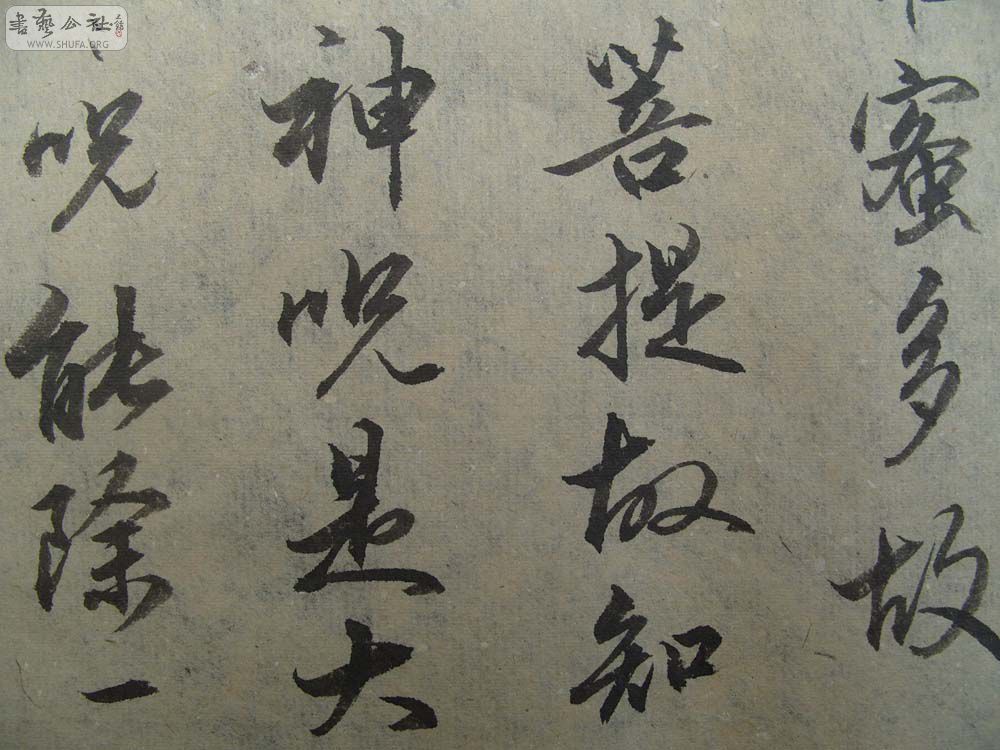 蜜多故
菩提故知
神呪是大
呪能除一
書藝公社
WWW.SHUFA.ORG